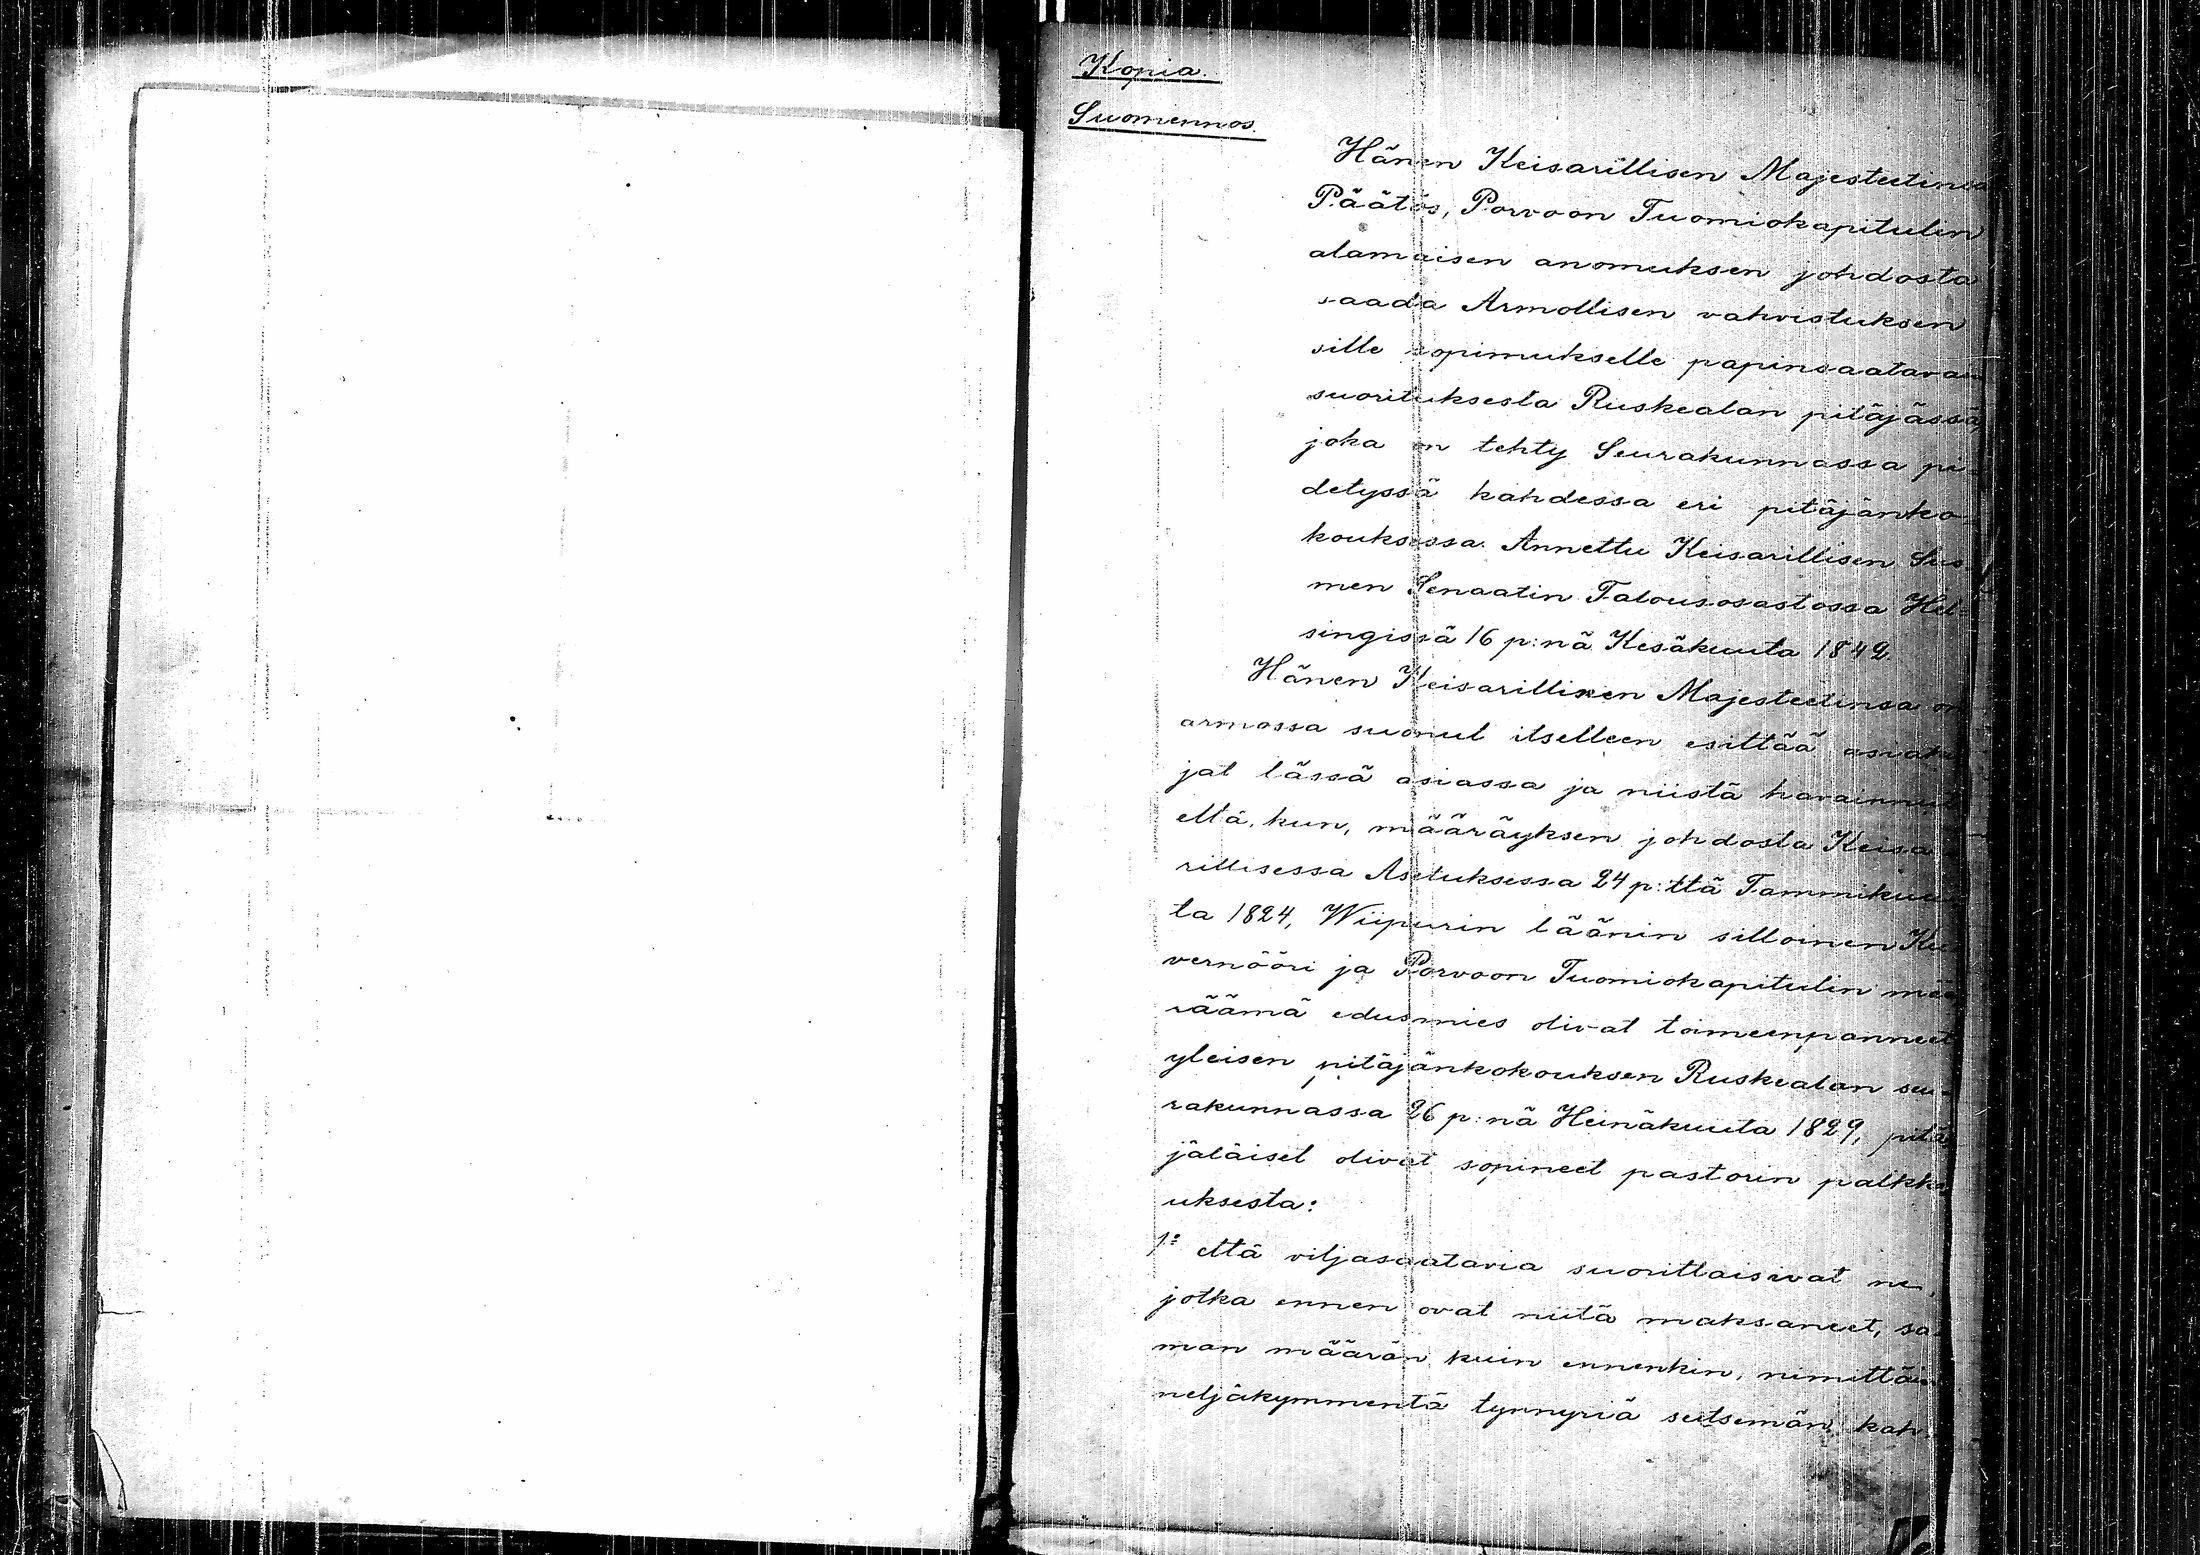 Kopia.
Suomennos.
Hänen Keisarillisen Majesteetinsa
Päätös, Porvoon Tuomiokapitulin
alamaisen anomuksen johdosta
saada Armollisen vahvistuksen
sille sopimukselle papinsaatavain
suorituksesta Ruskealan pitäjässä,
joka on tehty Seurakunnassa pi-
detyssä kahdessa eri pitäjänko-
kouksessa. Annettu Keisarillisen Suo-
men Senaatin Talousosastossa Hel-
singissä 16 p:nä Kesäkuuta 1842.
Hänen Keisarillisen Majesteetinsa on
armossa suonut itselleen esittää asiakir-
jat tässä asiassa ja niistä havainnut
että, kun, määräyksen johdosta Keisa-
rillisessa Asetuksessa 24 p:ttä Tammikuu-
ta 1824, Wiipurin läänin silloinen Ku-
vernööri ja Porvoon Tuomiokapitulin mää-
räämä edusmies olivat toimeenpanneet
yleisen pitäjänkokouksen Ruskealan seu-
rakunnassa 26 p:nä Heinäkuuta 1829, pitä-
jäläiset olivat sopineet pastorin palkka-
uksesta:
1:º että viljasaatavia suorittaisivat ne,
jotka ennen ovat niitä maksaneet, sa-
man määrän kuin ennenkin, nimittäin
neljäkymmentä tynnyriä seitsemän kah-